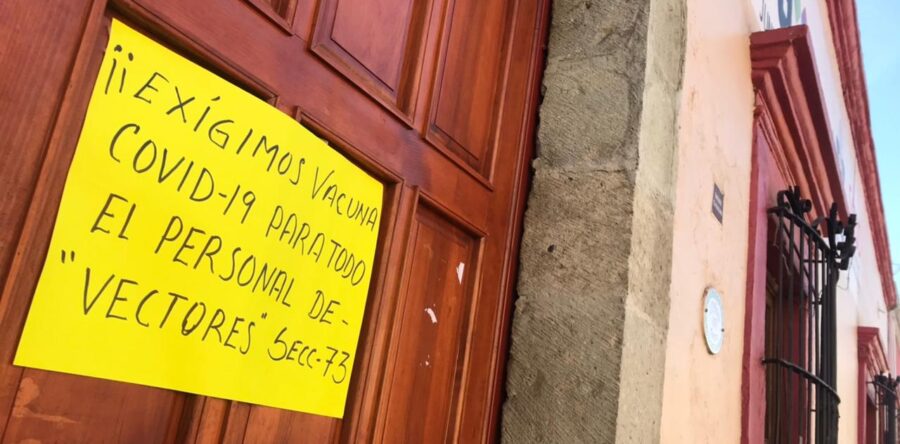 ¡¡EXÍGIMOS VACUNA
COVID-19 PARA TODO
EL PERSONAL DE-
"VECTORES" SECC-73